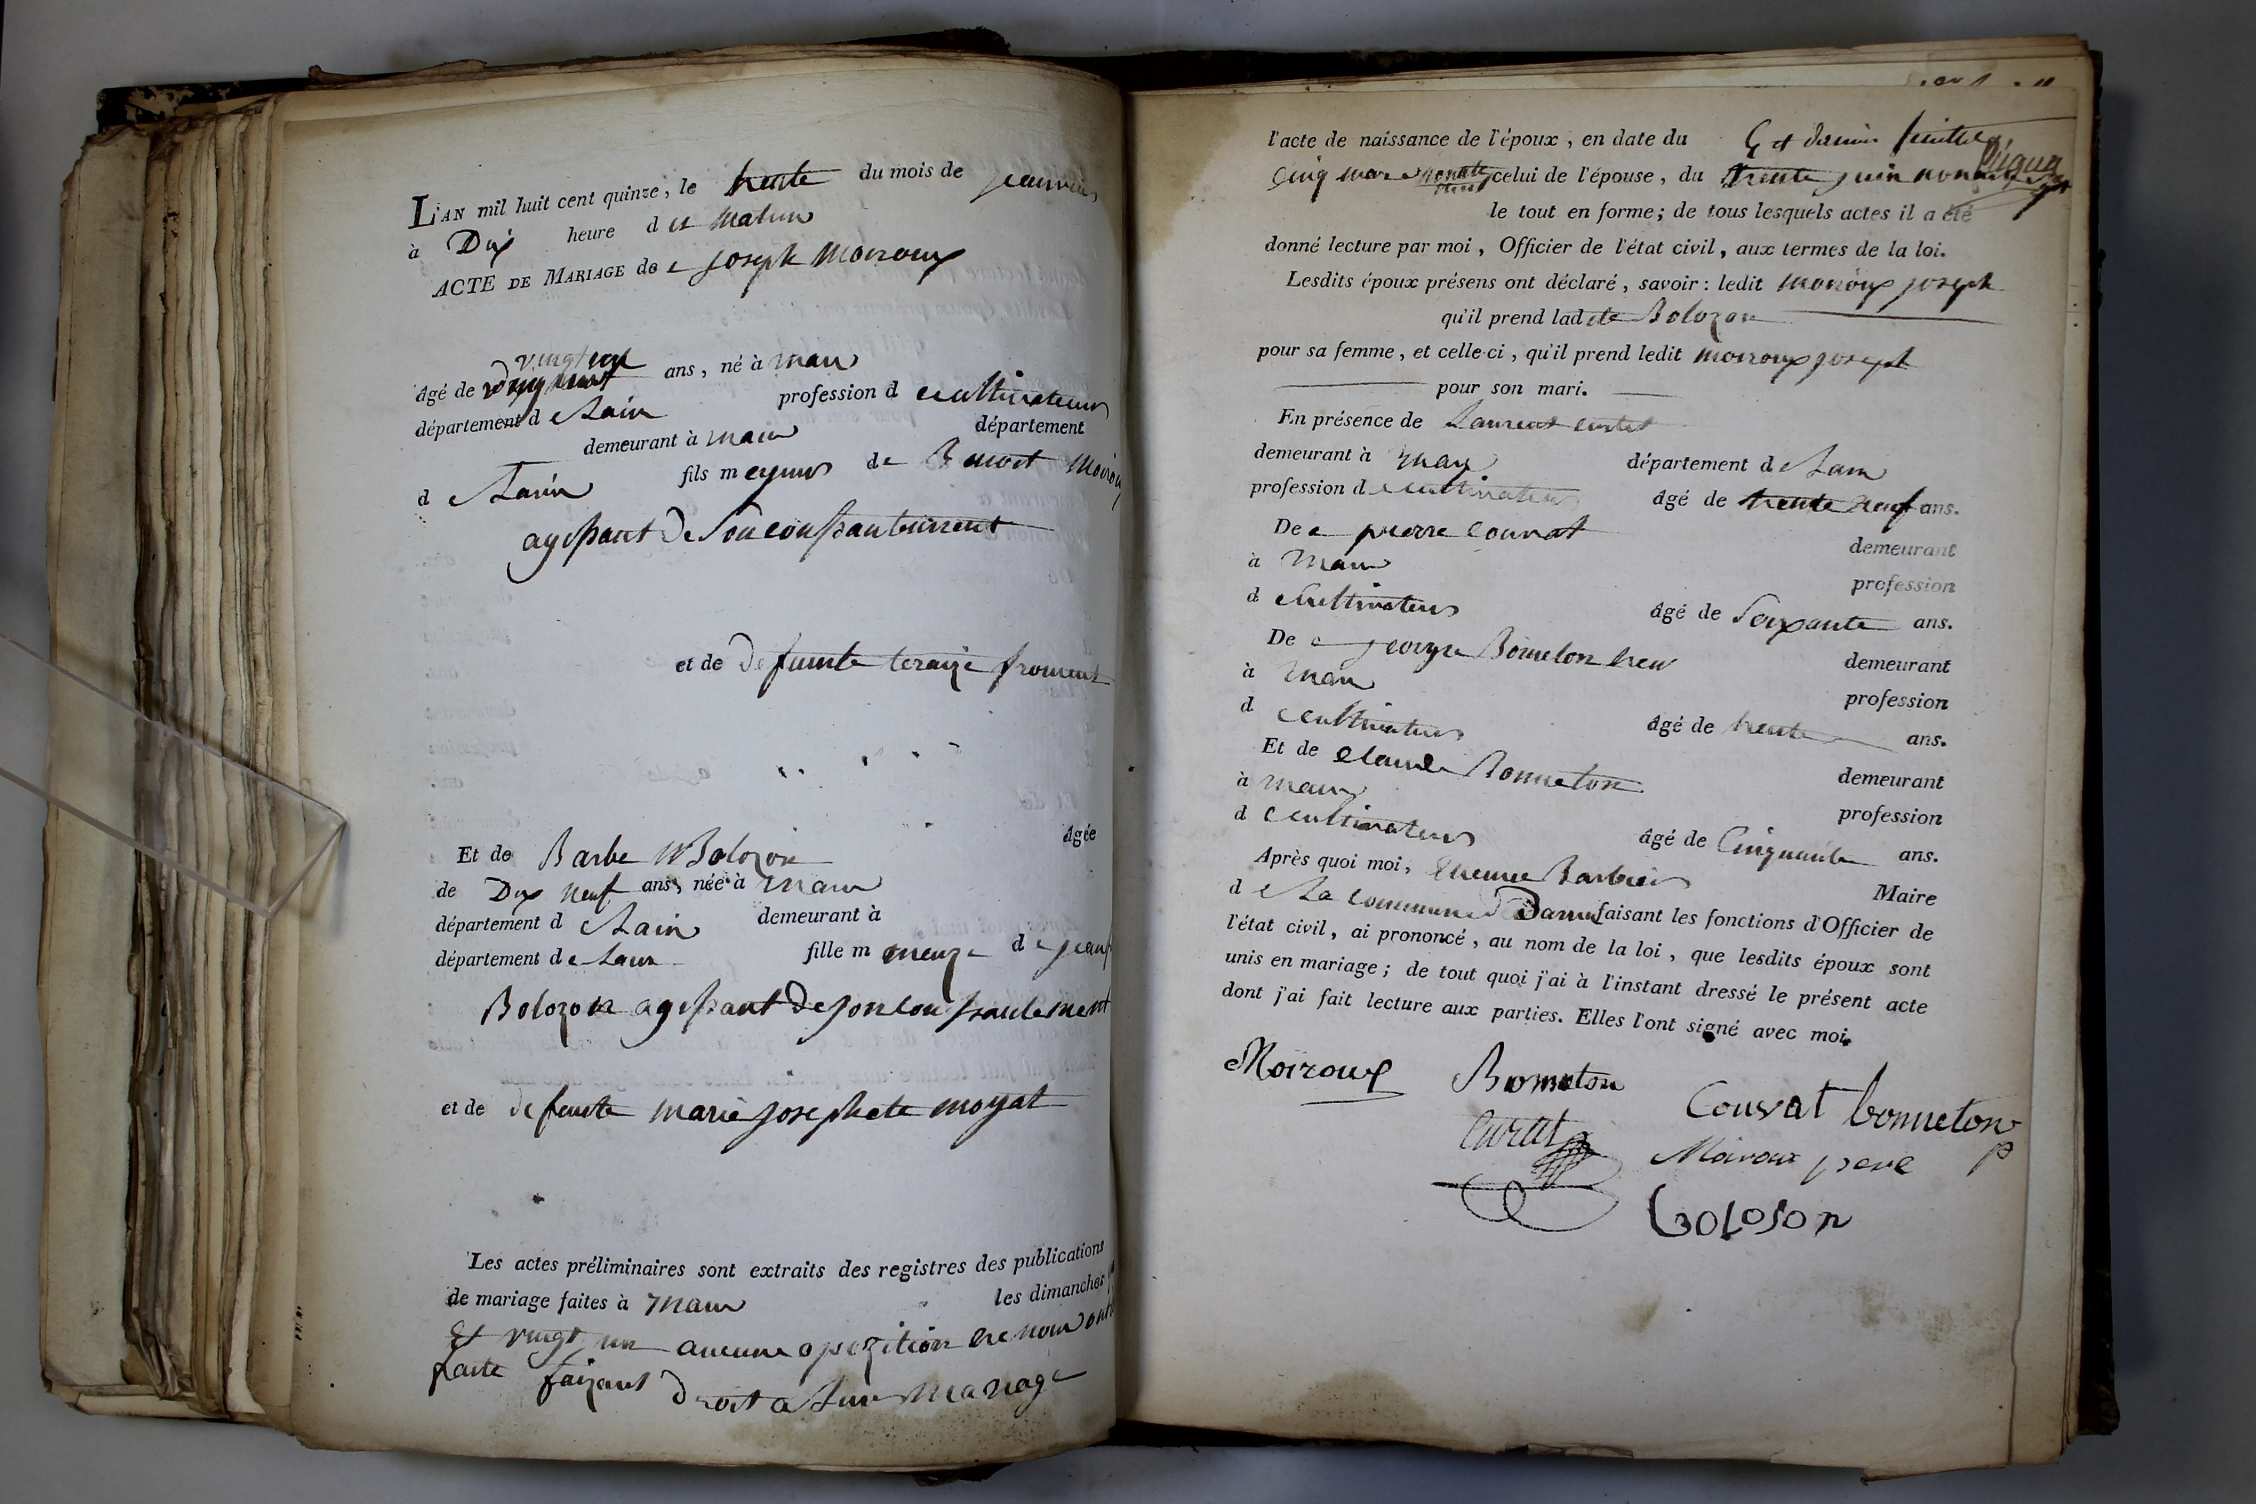 L'AN mil huit cent quinze, le trente du mois de jeanvier
à Dix heure d u matin
ACTE DE MARIAGE de joseph Moiroux
vingt neuf
âgé de ans, né à Marr
département d e Lain profession d e cultivateur
demeurant à marr département
d e Lain fils m ageur de Benoit Moiroux
agissant de son conssantement
et de defunte teraize froment
Et de Barbe Bolozon âgée
de Dix neuf ans, née à marr
département d e Lain demeurant à
département d e Lain fille m ineuze d e jean
Bolozon agissant de son conssantement
et de defunte marie josephete moyat
Les actes préliminaires sont extraits des registres des publications
de mariage faites à marr les dimanches
Et vingt un aucune opozition ne nous ont
faite faizant droit a leur mariage
l'acte de naissance de l'époux, en date du
Cinq celui de l'épouse, du trente juin
le tout en forme; de tous lesquels actes il a été
donné lecture par moi, Officier de l'état civil, aux termes de la loi.
Lesdits époux présens ont déclaré, savoir: ledit moiroux joseph
qu'il prend ladite Bolozon
pour sa femme, et celle-ci, qu'il prend ledit moiroux joseph
pour son mari.
En présence de Laurent curtet
demeurant à marr département d e Lain
profession d e cultivateur âgé de trente neuf ans.
De pierre Couvat demeurant
à marr profession
d e cultivateur âgé de Soixante ans.
De george Bonneton demeurant
à marr profession
d e cultivateur âgé de trente ans.
Et de claude Bonneton demeurant
à marr profession
d e cultivateur âgé de Cinquante ans.
Après quoi moi, Etienne Barbier Maire
d e La commune faisant les fonctions d'Officier de
l'état civil, ai prononcé, au nom de la loi, que lesdits époux sont
unis en mariage; de tout quoi j'ai à l'instant dressé le présent acte
dont j'ai fait lecture aux parties. Elles l'ont signé avec moi.
Moiroux Bonneton Couvat bonneton
Curtet Moiroux pere
boloson